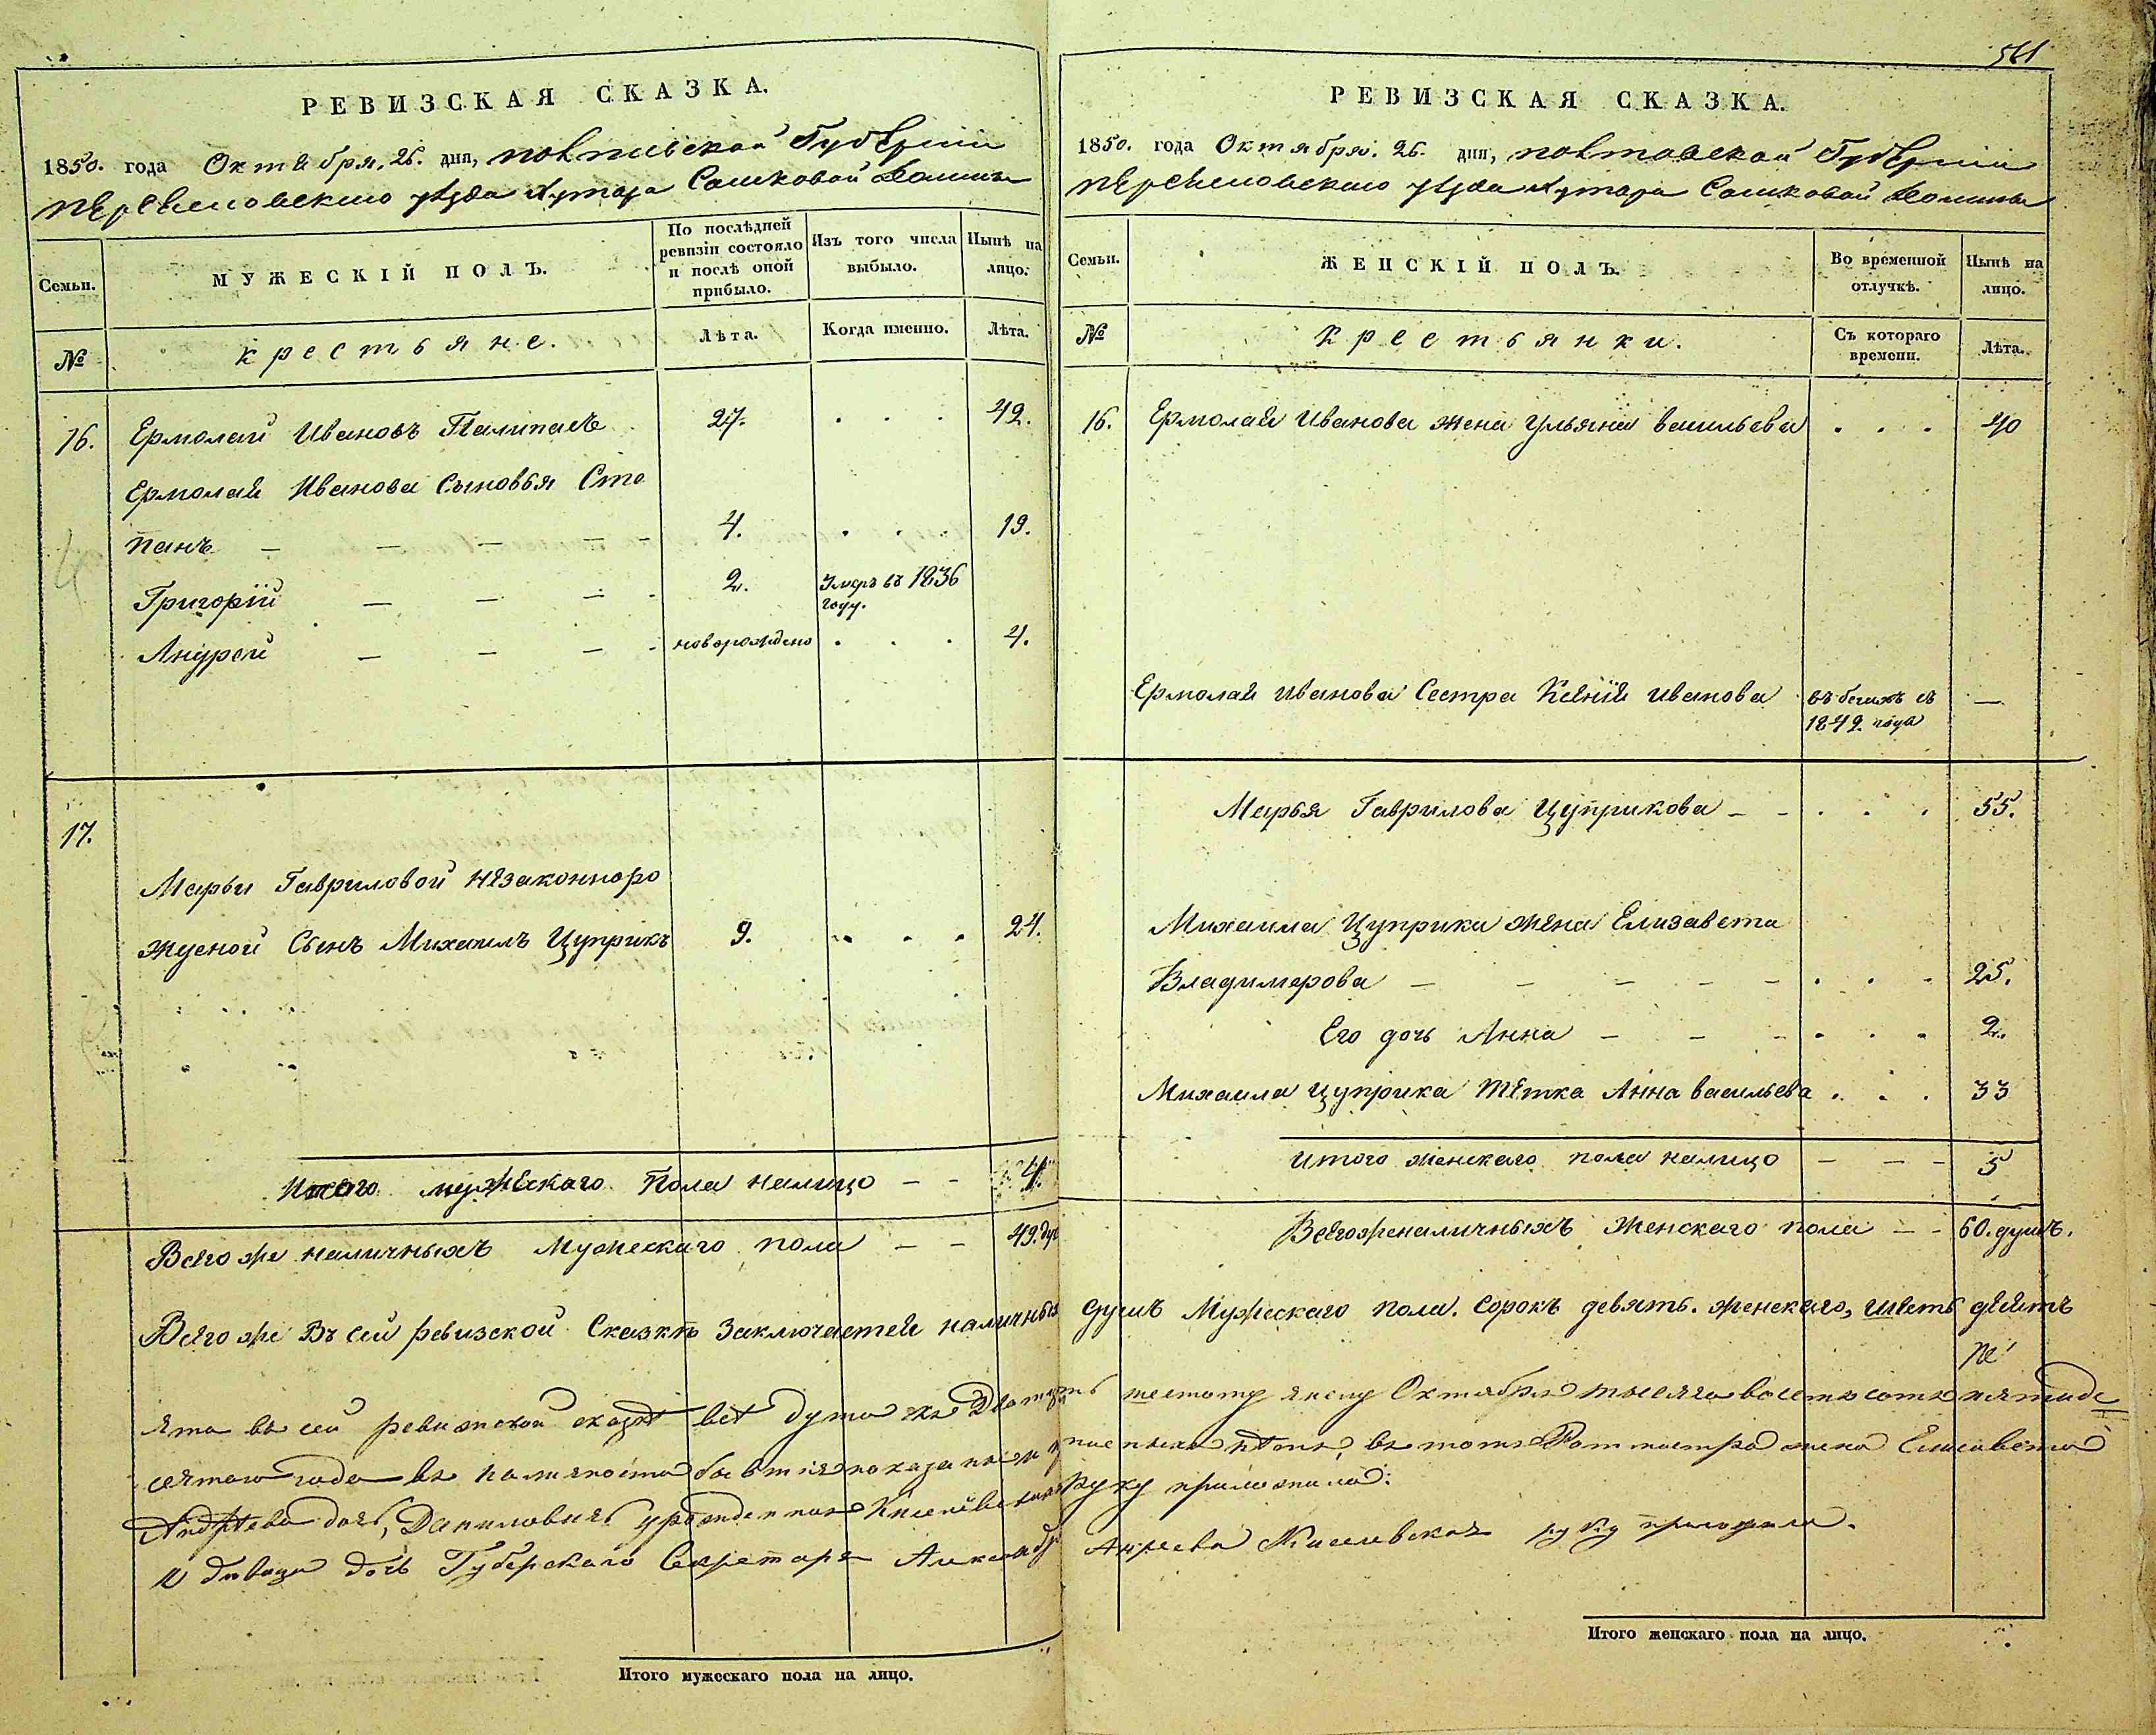 РЕВИЗСКАЯ СКАЗКА.
1850. года Октября. 26. дня, полтавской Губерніи
переяславскаго уѣзда хутора Сошковой Долины
Семьи.
МУЖЕСКІЙ ПОЛЪ.
По послѣдней ревизіи состояло и послѣ оной прибыло.
Изъ того числа выбыло.
Нынѣ на лицо.
№
крестьяне.
Лѣта.
Когда именно.
Лѣта.
16. Ермолай Ивановъ 27. . . . 42.
Ермолая Иванова Сыновья Сте
панъ — — — — 4. . . . 19.
Григорій — — — 2. Умеръ въ 1836 году.
Андрей — — — новорожденъ . . . 4.
17.
Марьи Гавриловой незаконноро
жденой Сынъ Михаилъ Цуприкъ 9. . . . 24.
Итого мужескаго Пола налицо — — 4.
Всего же наличныхъ Мужескаго пола — — 49. душ
Всего же Въ сей ревизской Сказкѣ Заключается наличныхъ
ята въ сей ревизской сказкѣ всѣ души къ Двадцать
сятаго года въ наличности
Андреева дочь, Даниловичь урожденная
и дѣвица дочь Губерскаго Секретаря
Итого мужескаго пола на лицо.
561
РЕВИЗСКАЯ СКАЗКА.
1850. года Октября. 26. дня, полтавской Губерніи
переяславскаго уѣзда хутора Сошковой Долины
Семьи.
ЖЕНСКІЙ ПОЛЪ.
Во временной отлучкѣ.
Нынѣ на лицо.
№
Крестьянки.
Съ котораго времени.
Лѣта.
16. Ермолая Иванова жена Ульяна васильева . . . 40
Ермолая иванова Сестра Ксенія иванова въ бегахъ съ 1842 года —
Марья Гаврилова Цуприкова — — . . . 55.
Михаила Цуприка жена Елизавета
Владимерова — — — — — . . . 25.
Его дочь Анна — — — . . . 2.
Михаила цуприка тетка Анна васильева . . . 33
итого женскаго пола налицо — — — 5
Всегоженаличныхъ женскаго пола — — 60. душъ.
душъ Мужескаго пола. сорокъ девять. женскаго, шесть десятъ
шестому числу Октября тысяча восемьсотъ пятиде
въ томъ Ротмистра жена Елисавета
руку приложила:
Киселевская руку приложила.
Итого женскаго пола на лицо.